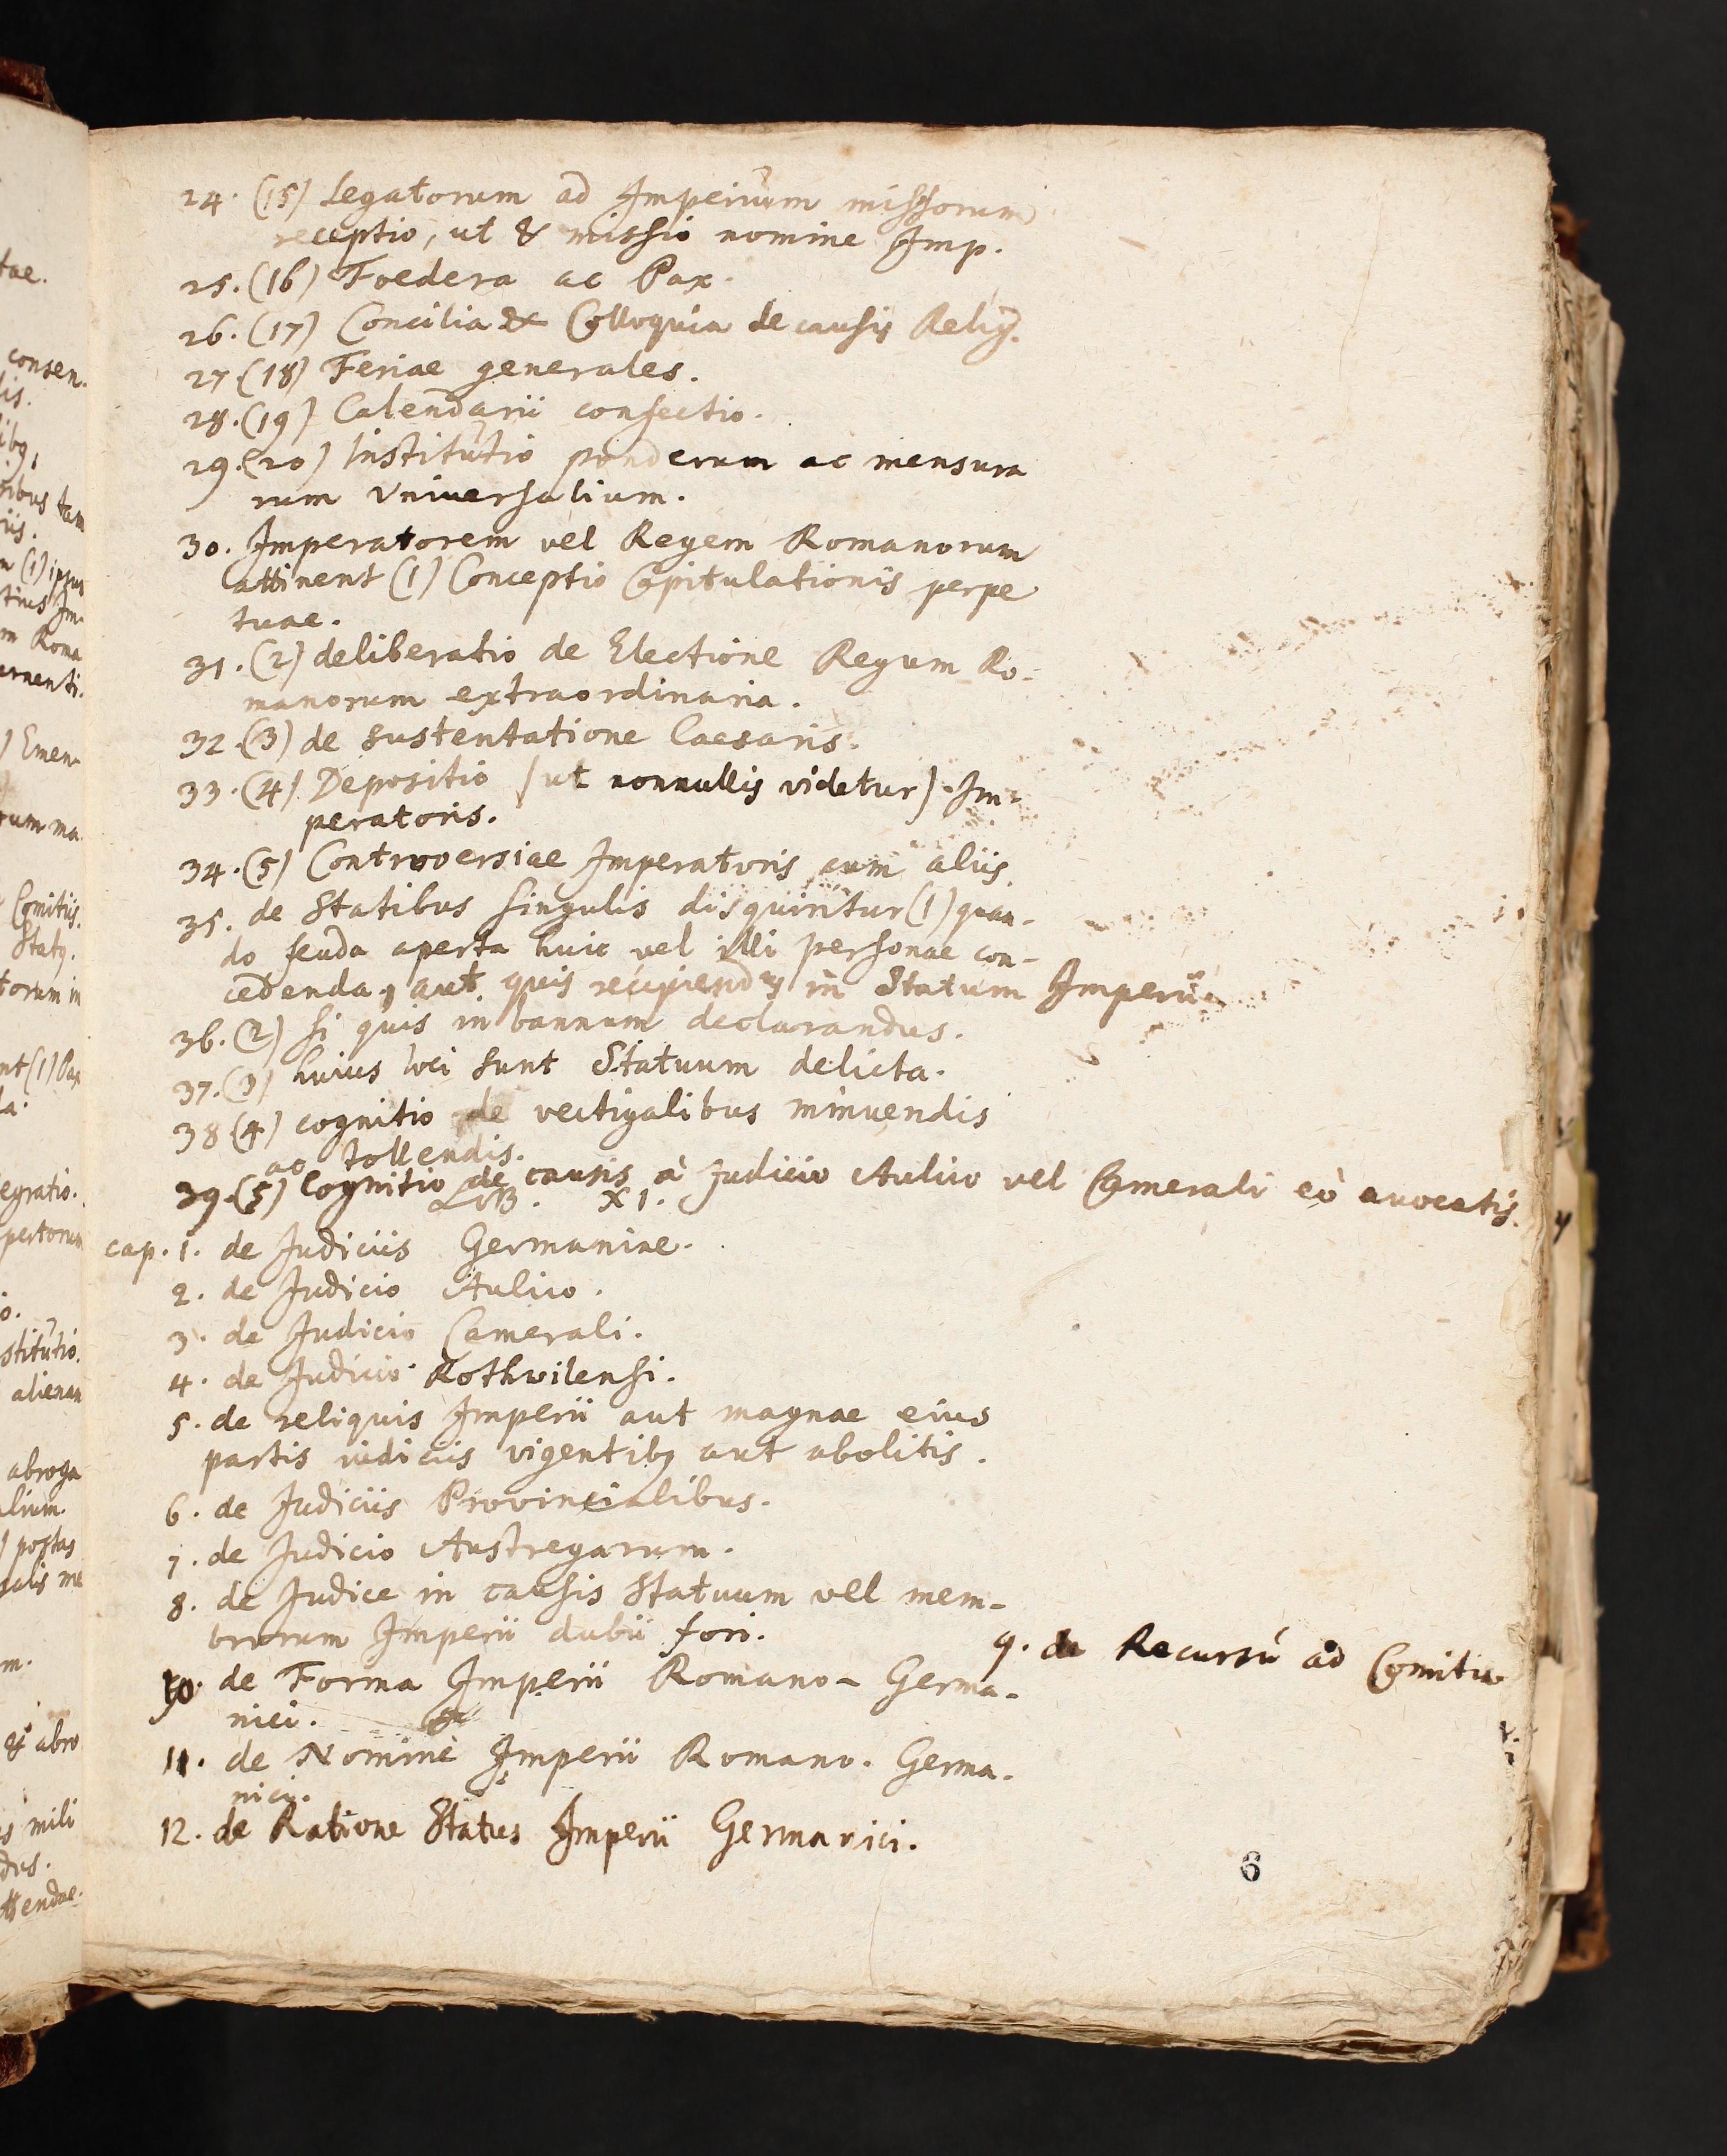 24. (15) Legatorum ad Imperium missorum
receptio, ut & missio nomine Imp.
25. (16) Foedera ac Pax.
26. (17) Concilia & Colloquia de causis Relig.
27 (18) Feriae generales.
28. (19) Calendarii confectio.
29. (20) Institutio ponderum ac mensura
rum Vniversalium.
30. Imperatorem vel Regem Romanorum
attinent (1) Conceptio Capitulationis perpe
tuae.
31. (2) deliberatio de Electione Regum Ro-
manorum extraordinaria.
32 (3) de sustentatione Caesaris.
33. (4) Depositio (ut nonnullis videtur) Im-
peratoris.
34. (5) Controversiae Imperatoris cum aliis.
35. de Statibus singulis disquiritur (1) quan-
do feuda aperta huic vel illi personae con-
cedenda, aut quis recipiendus in Statum Imperii
36. (2) si quis in bannum declarandus.
37. (3) huius loci sunt Statuum delicta.
38 (4) cognitio de vectigalibus minuendis
ac tollendis.
39. (5) Cognitio de causis à Judicio Aulico vel Camerali eò avocatis.
LIB. XI.
cap. 1. de Judiciis Germaniae.
2. de Judicio Aulico.
3. de Judicio Camerali.
4. de Judicio Rothwilensi.
5. de reliquis Imperii aut magnae eius
partis iudiciis vigentibq aut abolitis.
6. de Judiciis Provincialibus.
7. de Judicio Austregarum.
8. de Judice in causis Statuum vel mem-
brorum Imperii dubii fori.
9. de Recursu ad Comitia
10. de Forma Imperii Romano-Germa-
nici.
11. de Nomine Imperii Romano. Germa-
nici.
12. de Ratione Status Imperii Germanici.
6